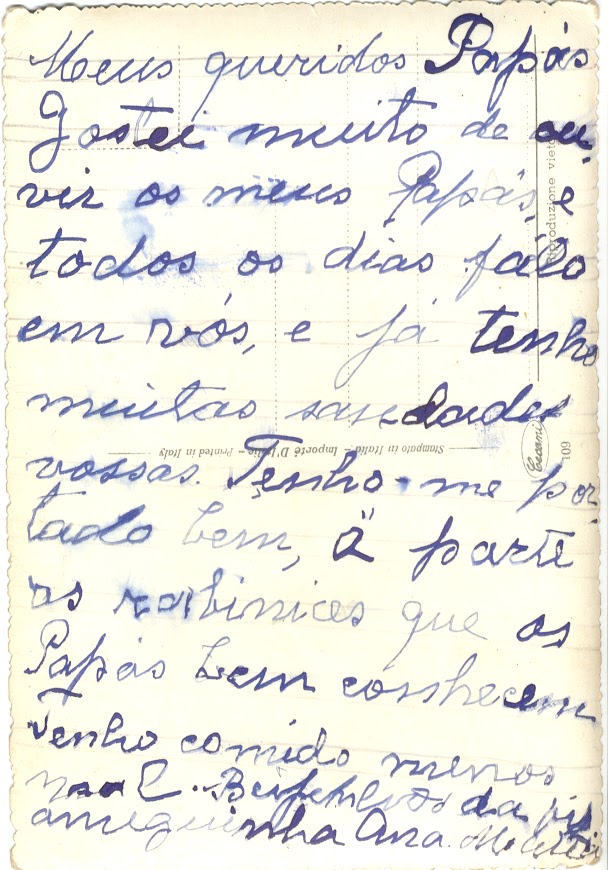 Meus queridos Papás
Gostei muito de ou-
vir os meus Papás, e
todos os dias fálo
em vós, e já tenho
muitas saudades
Stampato in Italia - Importé D'Italie - Printed in Italy
Cecami
109
Riproduzione vietata
vossas. Tenho-me por-
tado bem, à parte
as rabinices que os
Papás bem conhecem
Tenho comido menos
mal. da
amiguinha Ana